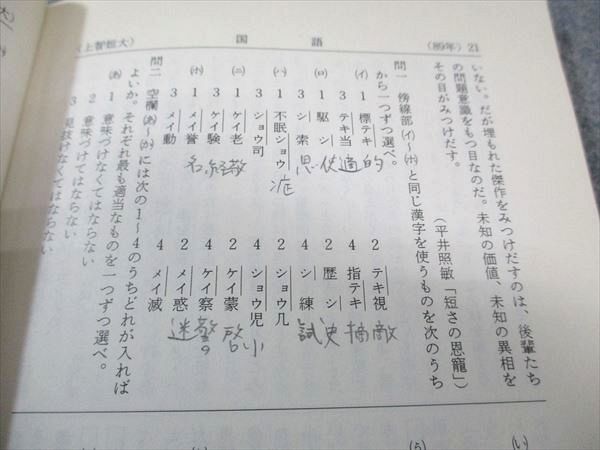 (上智短大)
国語
(89年) 21
いない。だが埋もれた傑作をみつけだすのは、後輩たち
の問題意識をもつ目なのだ。未知の価値、未知の異相を
その目がみつけだす。
(平井照敏「短さの恩寵」)
問一 傍線部(イ)〜(ホ)と同じ漢字を使うものを次のうち
から一つずつ選べ。
(イ) 1 標テキ 的 2 テキ視 敵
3 テキ当 適 4 指テキ 摘
(ロ) 1 駆シ 使 2 歴シ 史
3 シ索 思 4 シ練 試
(ハ) 1 不眠ショウ 症 2 ショウ几
3 ショウ司 4 ショウ児 小
(ニ) 1 ケイ老 敬 2 ケイ蒙 啓
3 ケイ験 経 4 ケイ察 警
(ホ) 1 メイ誉 名 2 メイ惑 迷
3 メイ動 4 メイ滅
問二 空欄(あ)〜(か)には次の1〜4のうちどれが入れば
よいか。それぞれ最も適当なものを一つずつ選べ。
(あ) 1 意味づけなくてはならない
2 意味づけてはならない
3 見抜けなくてはならない
(う)
(い)